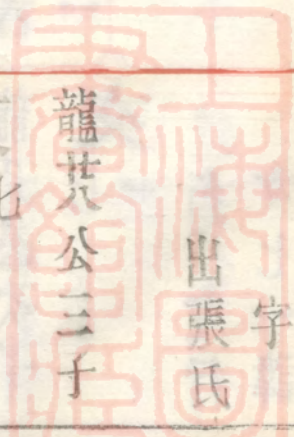 字
出張氏
龍廿八公三子